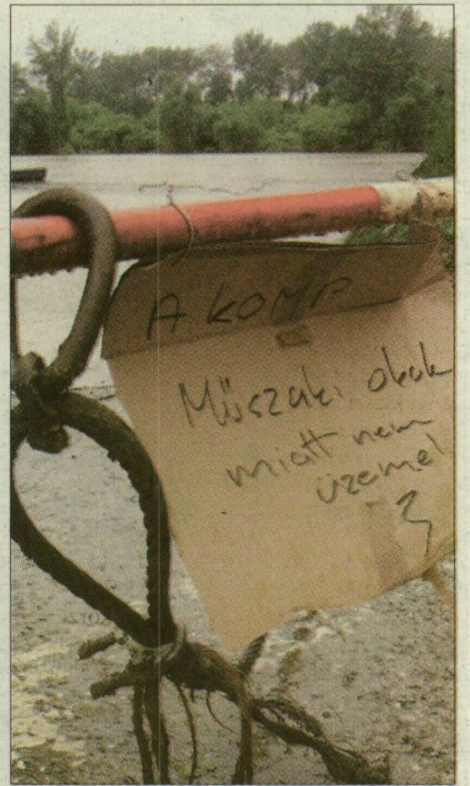 A KOMP
Műszaki okok
miatt nem
üzemel